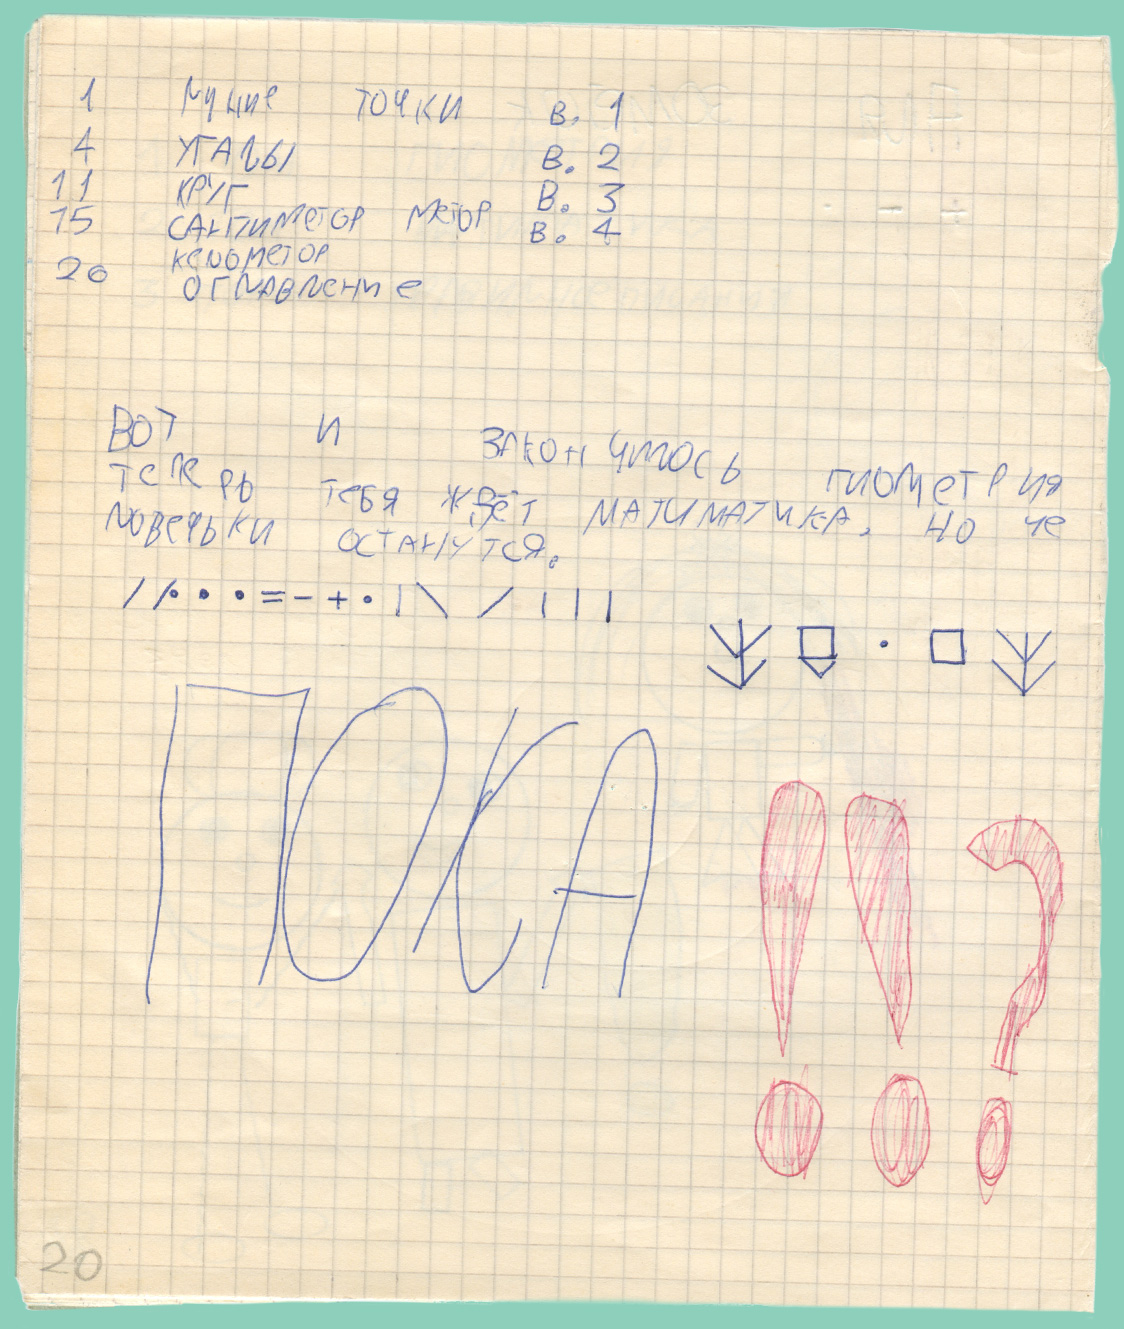 1 лучие точки в. 1
4 углы в. 2
11 круг в. 3
15 сантиметор метор в. 4
келометор
20 оглавление
Вот и закончилось гиометрия
теперь тебя ждёт матиматика, но че
ловечьки останутся.
/ /• • • = - + • | \ / | | |
ПОКА
!!?
20